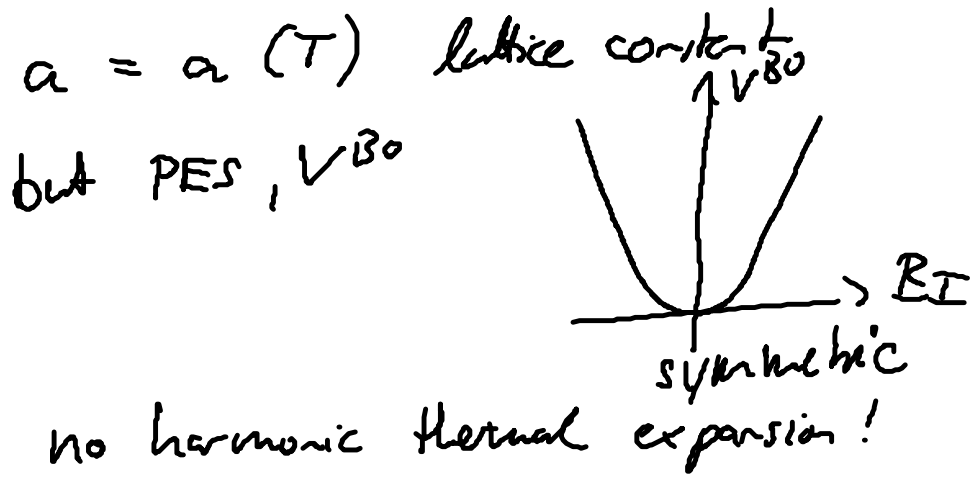 a = a (T) lattice constant
but PES, V^BO
V^BO
R_I
symmetric
no harmonic thermal expansion!